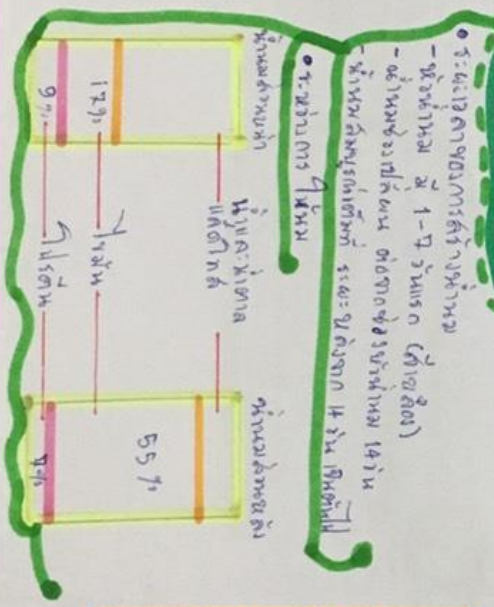 • ระยะเวลาของการสร้างน้ำนม
- หัวน้ำนม มี 1-7 วันแรก (สีเหลือง)
- น้ำนมช่วงเปลี่ยน ต่อจากช่วงหัวน้ำนม 14 วัน
- น้ำนมสมบูรณ์เต็มที่ ระยะหลังจาก 14 วัน เป็นต้นไป
• ระหว่างการให้นม
น้ำนมส่วนหน้า
น้ำนมส่วนหลัง
น้ำและน้ำตาล
แลคโทส
17%
ไขมัน
55%
9%
โปรตีน
7%